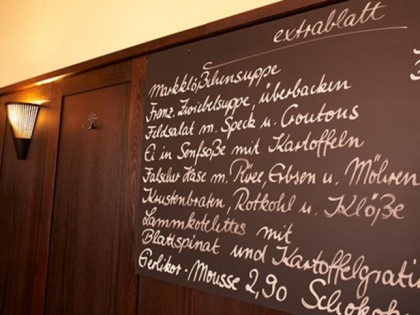 extrablatt
Markklößchensuppe
Franz. Zwiebelsuppe, überbacken
Feldsalat m. Speck u. Croutons
Ei in Senfsoße mit Kartoffeln
Falscher Hase m. Püree, Erbsen u. Möhren
Krustenbraten, Rotkohl u. Klöße
Lammkotelettes mit
Blattspinat und Kartoffelgratin
Eierlikör-Mousse 2,90 Schokol